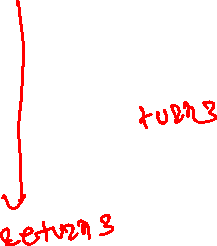 turn3
return3